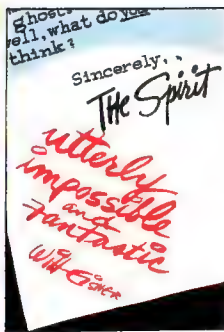 ghost.
well, what do you
think?
Sincerely,
THE Spirit
utterly
impossible
and
Fantastic
Will Eisner